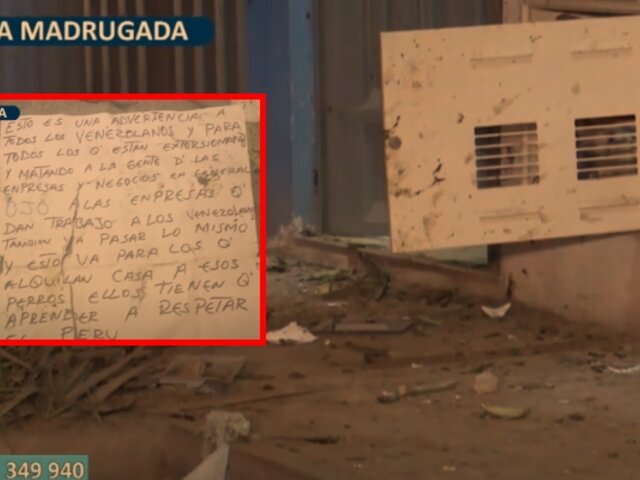 A MADRUGADA
A
ESTO ES UNA ADVERTENCIA A
TODOS LOS VENEZOLANOS Y PARA
TODOS LOS Q' ESTAN EXTORSIONANDO
Y MATANDO A LA GENTE D' LAS
ENPRESAS Y NEGOCIOS EN GENERAL
OJO A LAS ENPRESAS Q'
DAN TRABAJO A LOS VENEZOLANOS
TAMBIEN VA PASAR LO MISMO
Y ESTO VA PARA LOS Q'
ALQUILAN CASA A ESOS
PERROS ELLOS TIENEN Q'
APRENDER A RESPETAR
EL PERU
349 940